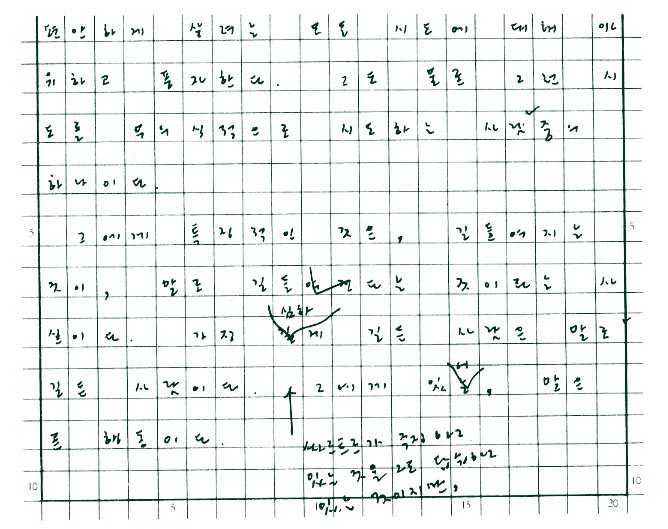 편안하게 살려는 모든 시도에 대해 야
유하고 풍자한다. 그도 물론 그런 시
도를 무의식적으로 시도하는 사람 중의
하나이다.
5 그에게 특징적인 것은, 길들여지는 5
것이, 말로 길들여진다는 것이라는 사
심하
실이다. 가장 게 길든 사람은 말로
길든 사람이다. 그에게 있어
, 말은
곧 행동이다.
싸르트르가 주장하고
있는 것을 그도 답습하고
있는 것이지만,
10 10
5 15 20